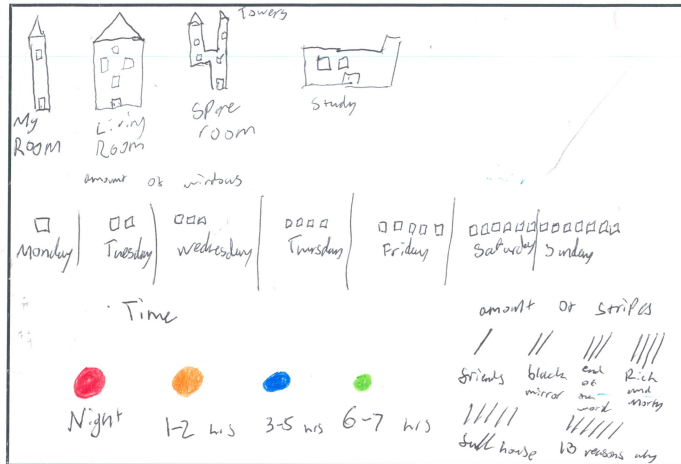 Towers
My Room
Living Room
Spare room
Study
amount of windows
Monday Tuesday Wednesday Thursday Friday Saturday Sunday
Time
Night 1-2 hrs 3-5 hrs 6-7 hrs
amount of stripes
friends black mirror end of the word Rick and Morty
full house 13 reasons why